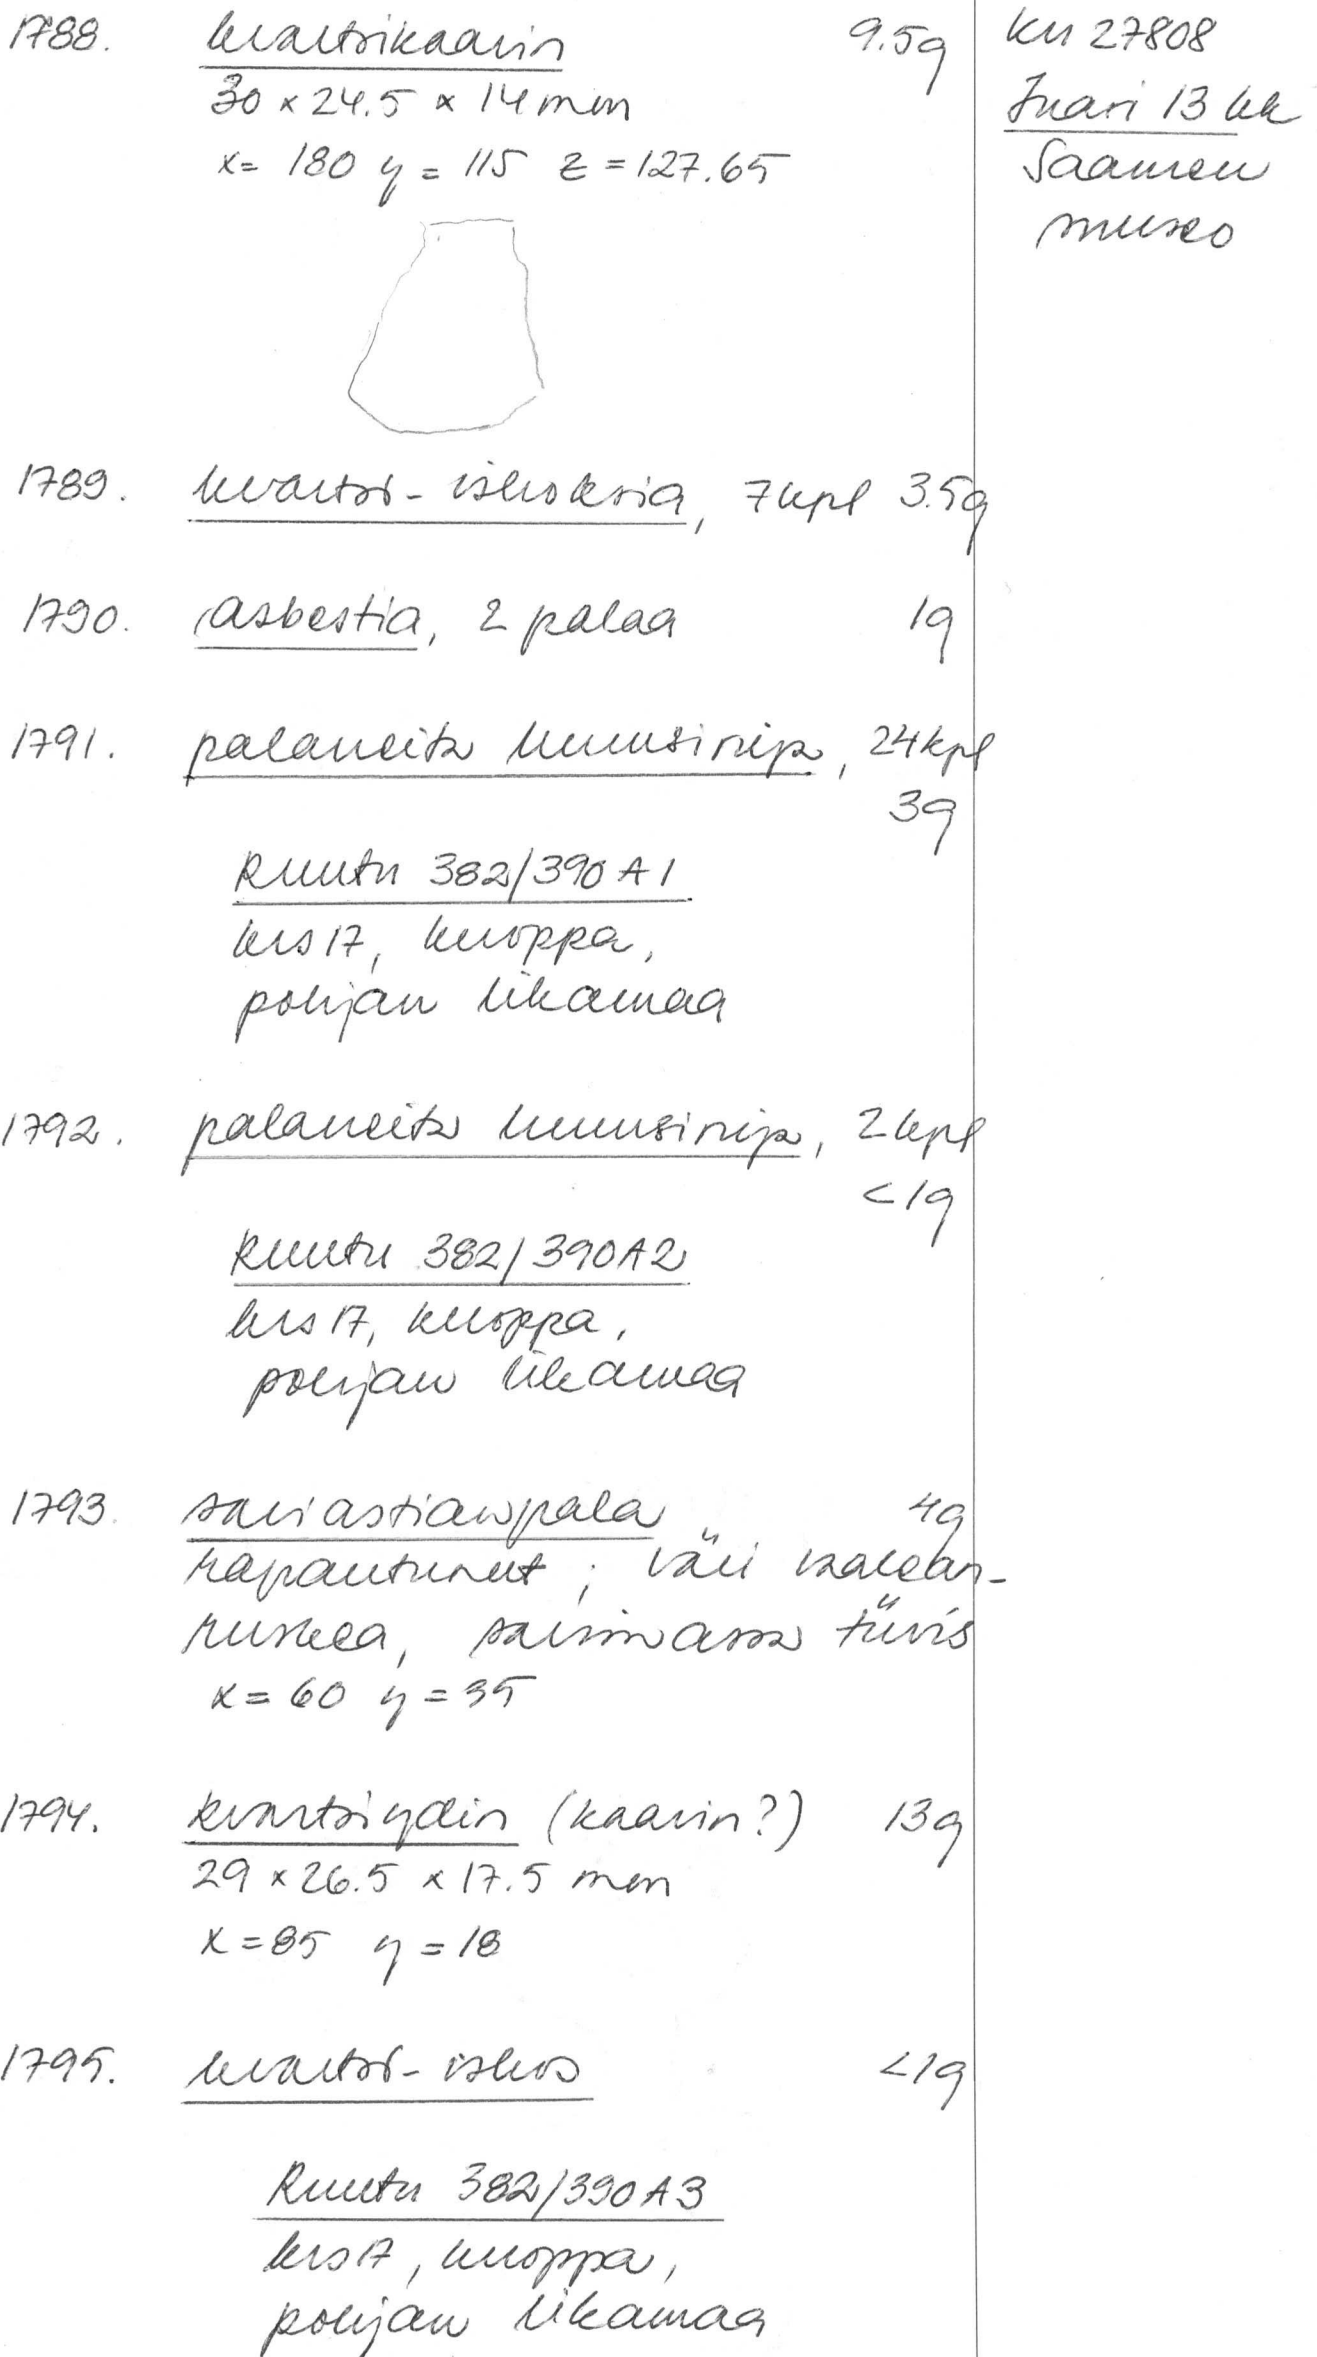 1788. kvartsikaavin 9.5g
30 x 24.5 x 14 mm
x= 180 y = 115 z = 127.65
KM 27808
Inari 13 kk
Saamen
museo
1789. kvartsi-iskoksia, 7 kpl 3.5g
1790. asbestia, 2 palaa 1g
1791. palaneita luunsiruja, 24 kpl
3g
Ruutu 382/390 A1
krs 17, kuoppa,
pohjan likamaa
1792. palaneita luunsiruja, 2 kpl
<1g
Ruutu 382/390 A2
krs 17, kuoppa,
pohjan likamaa
1793. saviastianpala 4g
rapautunut; väri vaalean-
ruskea, savimassa tiivis
x = 60 y = 35
1794. kvartsiydin (kaavin?) 13g
29 x 26.5 x 17.5 mm
x = 85 y = 18
1795. kvartsi-iskos <1g
Ruutu 382/390 A3
krs 17, kuoppa,
pohjan likamaa